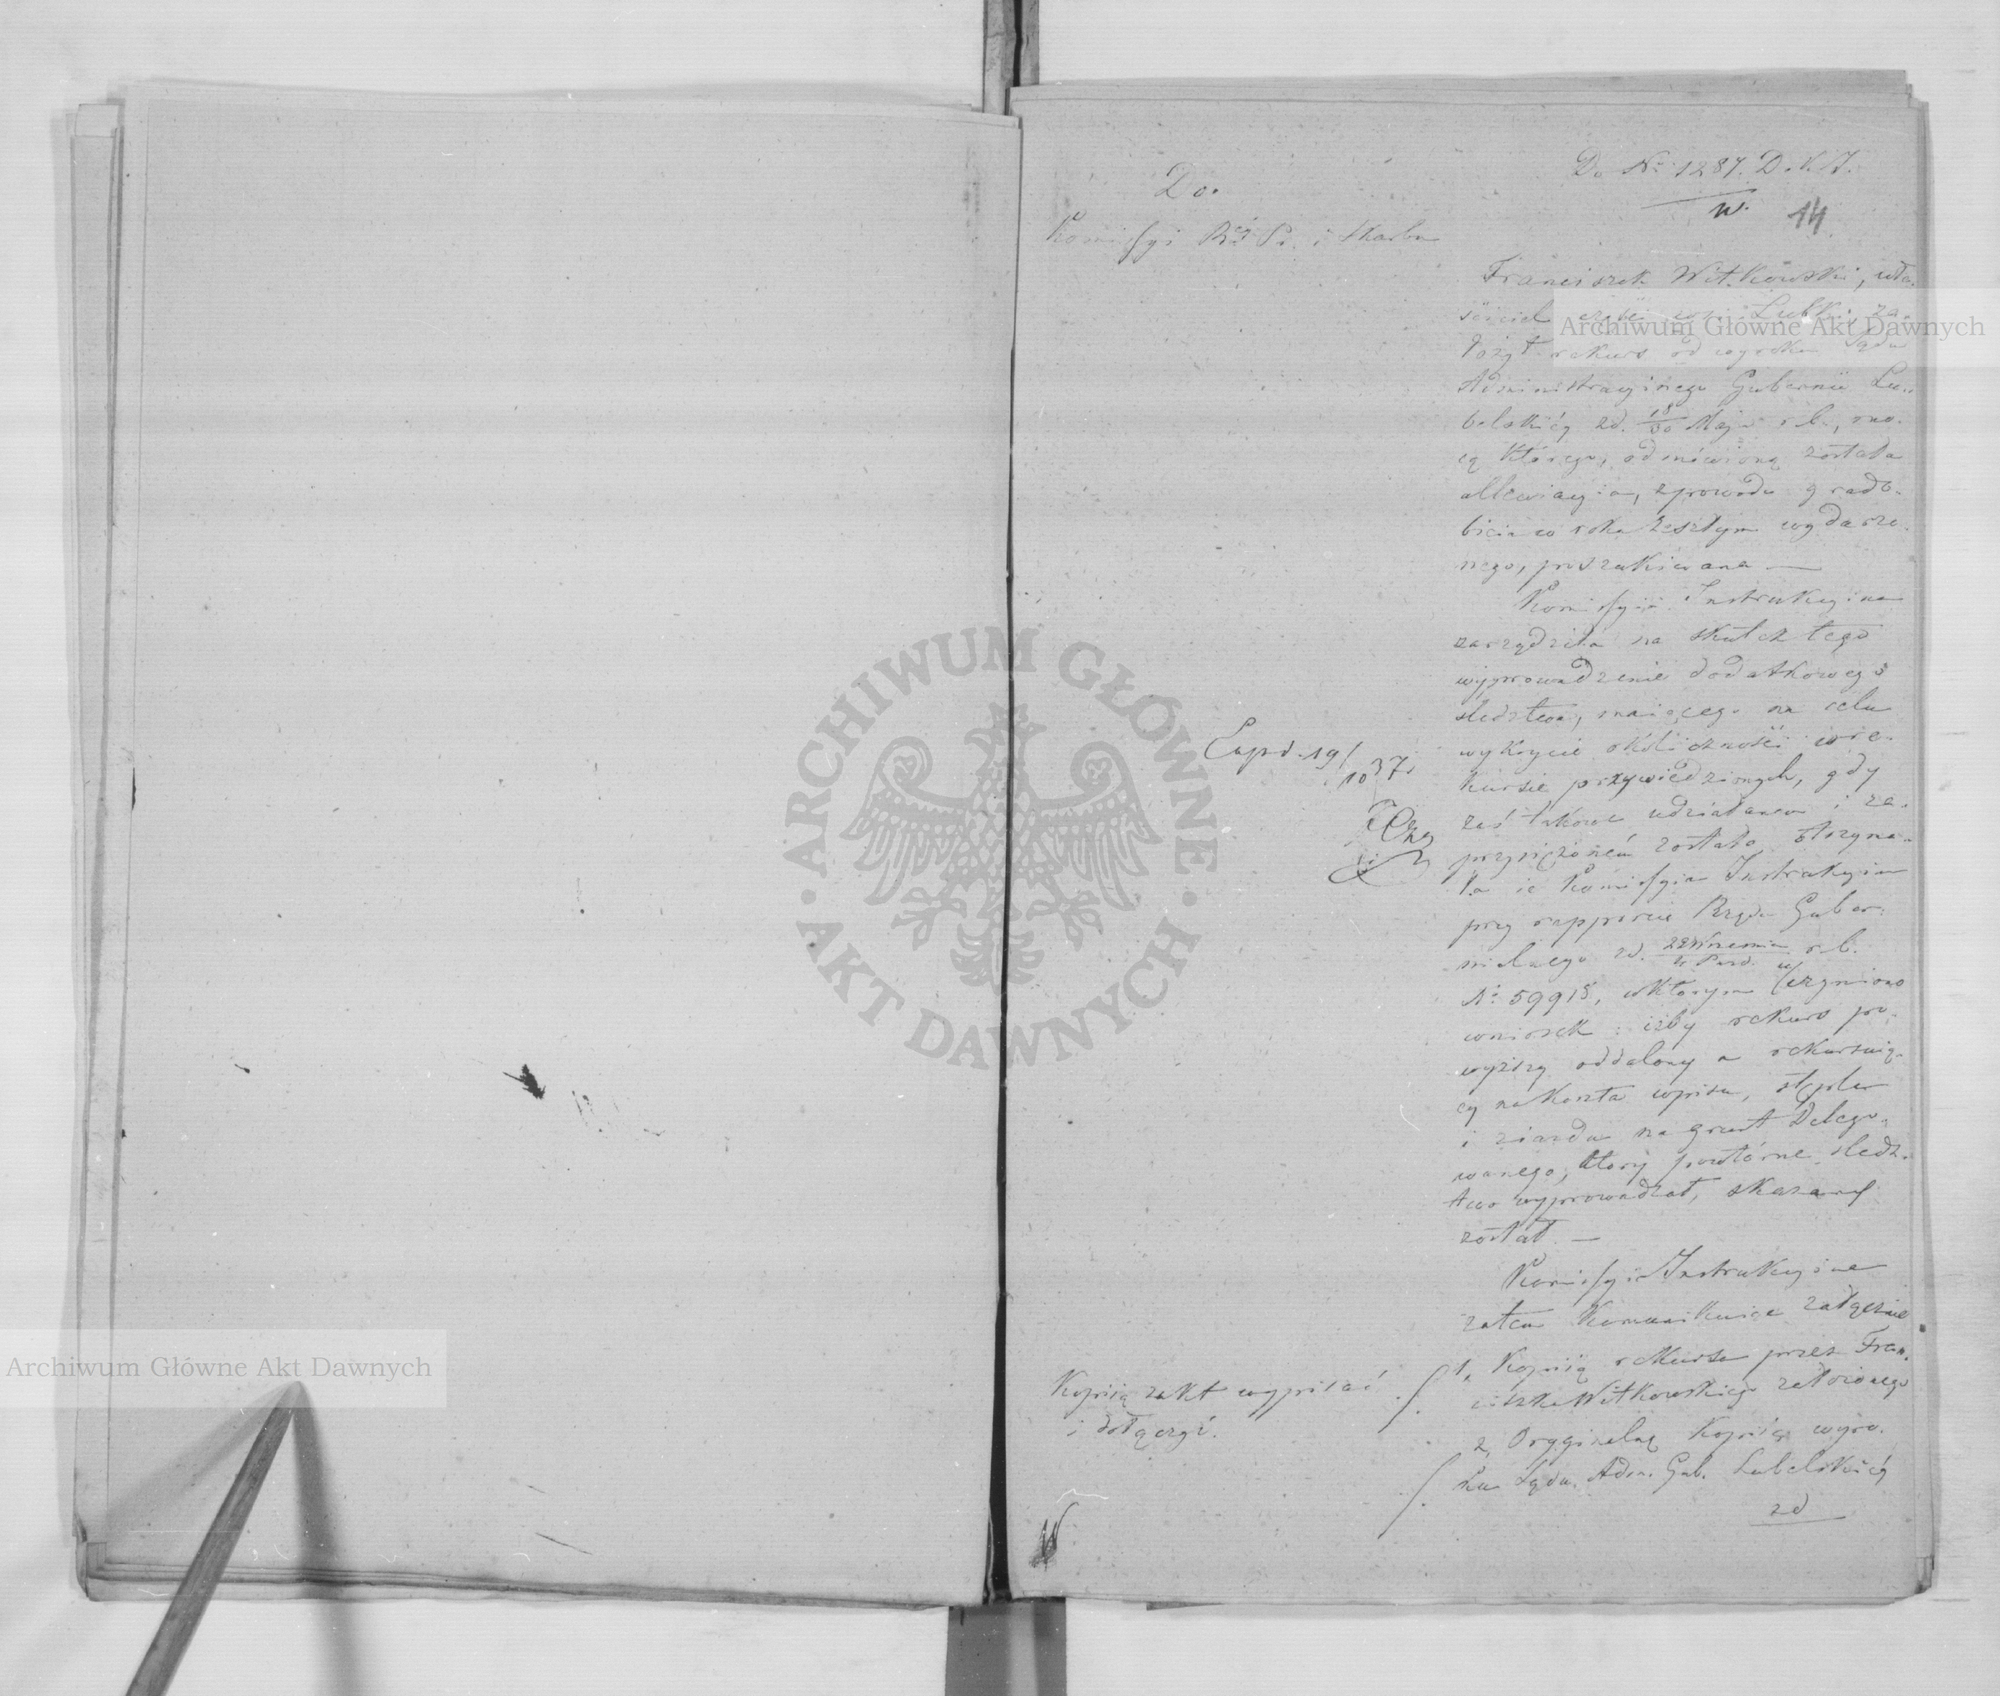 Do Nr 1287. D.K.I.
W.
14
Do.
Komissyi Rz. Pr. i Skarbu
Franciszek Witkowski, wła-
ściciel części wsi Lubki, za-
łożył rekurs od wyroku Sądu
Administracyjnego Gubernii Lu-
belskiéy zd. 18/30 Maja r. b., mo-
cą którego, odmówioną została
allewiacyia, z powodu grado-
bicia w roku zeszłym wydarzo-
nego, poszukiwana —
Komissyia Instrukcyina
zarządziła na skutek tego
wyprowadzenie dodatkowego
śledztwa, maiącego na celu
wykrycie okoliczności w re-
kursie przywiedzionych, gdy
zaś takowe udziałanem i za-
przysiężoném zostało, otrzyma-
ła ie Komissyia Instrukcyina
przy rapporcie Rządu Guber-
nialnego zd. 22 Września / 4 Paźd. r. b.
Nr 59918, w którym uczyniono
wniosek: iżby rekurs po-
wyższy oddalony a rekursuią-
cy na koszta wpisu, stęplu
i ziazdu na grunt Delego-
wanego, który powtórne śledz-
two wyprowadzał, skazany
został. —
Komissyia Instrukcyina
zatem kommunikuiąc załącznie
1, Kopiią rekursu przez Fran-
ciszka Witkowskiego założonego
2, Orygginalną Kopiią wyro-
ku Sądu Adm. Gub. Lubelskiéy
zd
Exp. d. 19/10 37.
Kopiią z akt wypisać
i dołączyć.
ARCHIWUM GŁÓWNE
AKT DAWNYCH
Archiwum Główne Akt Dawnych
Archiwum Główne Akt Dawnych